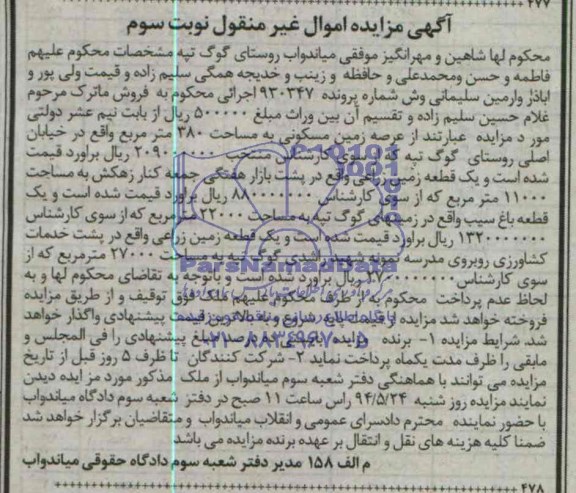 ۴۷۷
آگهی مزایده اموال غیر منقول نوبت سوم
محکوم لها شاهین و مهرانگیز موفقی میاندواب روستای گوگ تپه مشخصات محکوم علیهم
فاطمه و حسن ومحمدعلی و حافظه و زینب و خدیجه همگی سلیم زاده و قیمت ولی پور و
اباذر وارمین سلیمانی وش شماره پرونده ۹۳۰۳۴۷ اجرائی محکوم به فروش ماترک مرحوم
غلام حسین سلیم زاده و تقسیم آن بین وراث مبلغ ۵۰۰۰۰۰ ریال از بابت نیم عشر دولتی
مور د مزایده عبارتند از عرصه زمین مسکونی به مساحت ۳۸۰ متر مربع واقع در خیابان
اصلی روستای گوگ تپه که از سوی کارشناس منتخب ریال براورد قیمت
شده است و یک قطعه زمین زراعی واقع در پشت بازار هفتگی جمعه کنار زهکش به مساحت
۱۱۰۰۰ متر مربع که از سوی کارشناس ریال براورد قیمت شده است و یک
قطعه باغ سیب واقع در زمینهای گوگ تپه به مساحت ۲۲۰۰۰ متر مربع که از سوی کارشناس
۱۳۲۰۰۰۰۰۰۰ ریال براورد قیمت شده است و یک قطعه زمین زراعی واقع در پشت خدمات
کشاورزی روبروی مدرسه نمونه شهید راشدی گوگ تپه به مساحت ۲۷۰۰۰ مترمربع که از
سوی کارشناس ریال براورد شده است و باتوجه به تقاضای محکوم لها و به
لحاظ عدم پرداخت محکوم به از طرف محکوم علیهم ملک فوق توقیف و از طریق مزایده
فروخته خواهد شد مزایده از قیمت پایه شروع و به بالاترین قیمت پیشنهادی واگذار خواهد
شد. شرایط مزایده ۱- برنده مزایده مبلغ پیشنهادی را فی المجلس و
مابقی را ظرف مدت یکماه پرداخت نماید ۲- شرکت کنندگان تا ظرف ۵ روز قبل از تاریخ
مزایده می توانند با هماهنگی دفتر شعبه سوم میاندواب از ملک مذکور مورد مزایده دیدن
نمایند مزایده روز شنبه ۹۴/۵/۲۴ راس ساعت ۱۱ صبح در دفتر شعبه سوم دادگاه میاندواب
با حضور نماینده محترم دادسرای عمومی و انقلاب میاندواب و متقاضیان برگزار خواهد شد
ضمنا کلیه هزینه های نقل و انتقال بر عهده برنده مزایده می باشد
م الف ۱۵۸ مدیر دفتر شعبه سوم دادگاه حقوقی میاندواب
۴۷۸
ParsNamadData
۰۲۱-۸۸۳۴۹۶۷۰